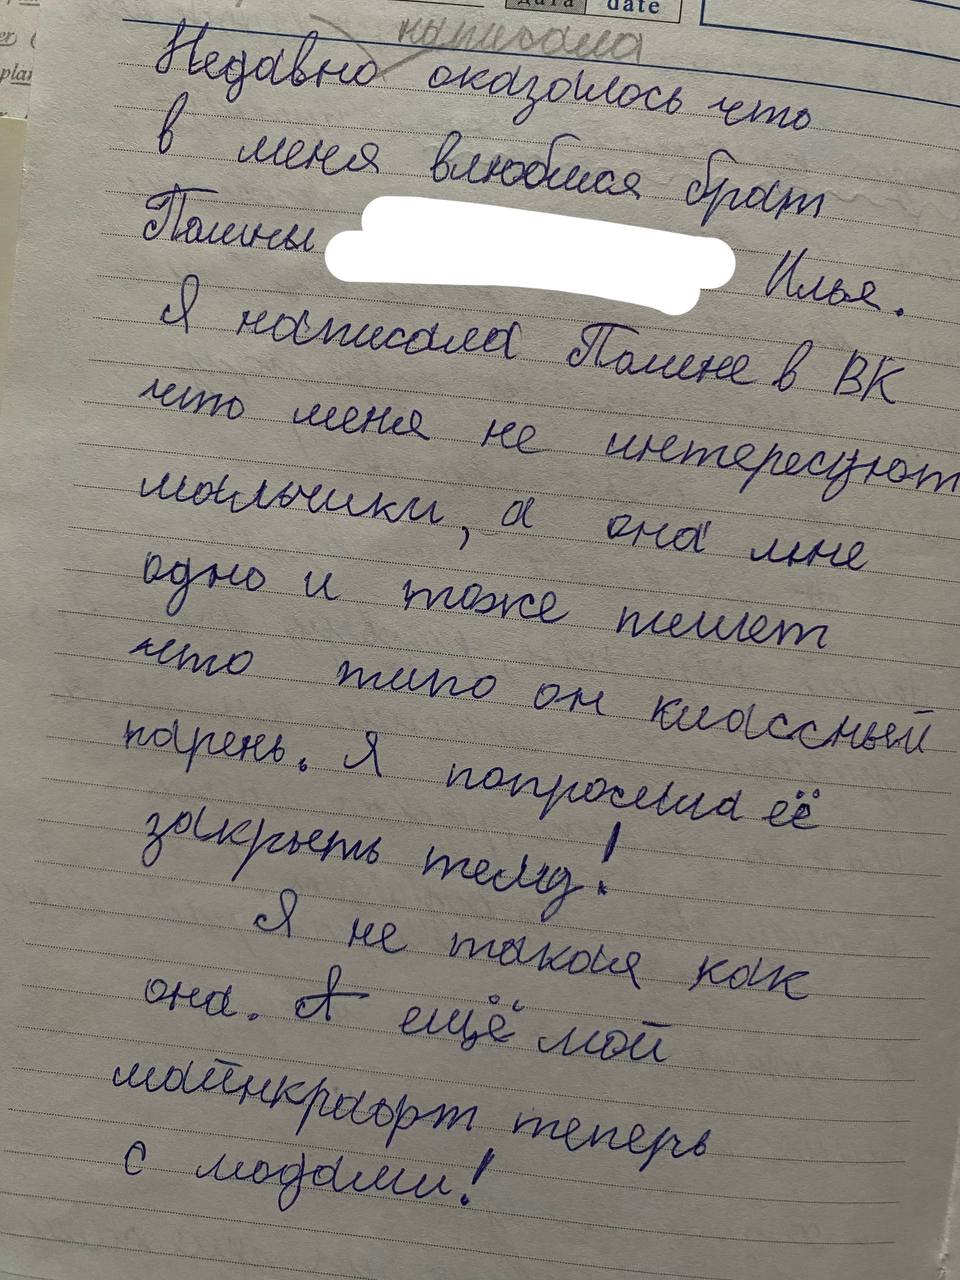 дата date
plan
написала
Недавно оказалось что
в меня влюбился брат
Полины Илья.
Я написала Полине в ВК
что меня не интересуют
мальчики, а она мне
одно и тоже пишет
что типо он классный
парень. Я попросила её
закрыть тему!
Я не такая как
она. А ещё мой
майнкрафт теперь
с модами!